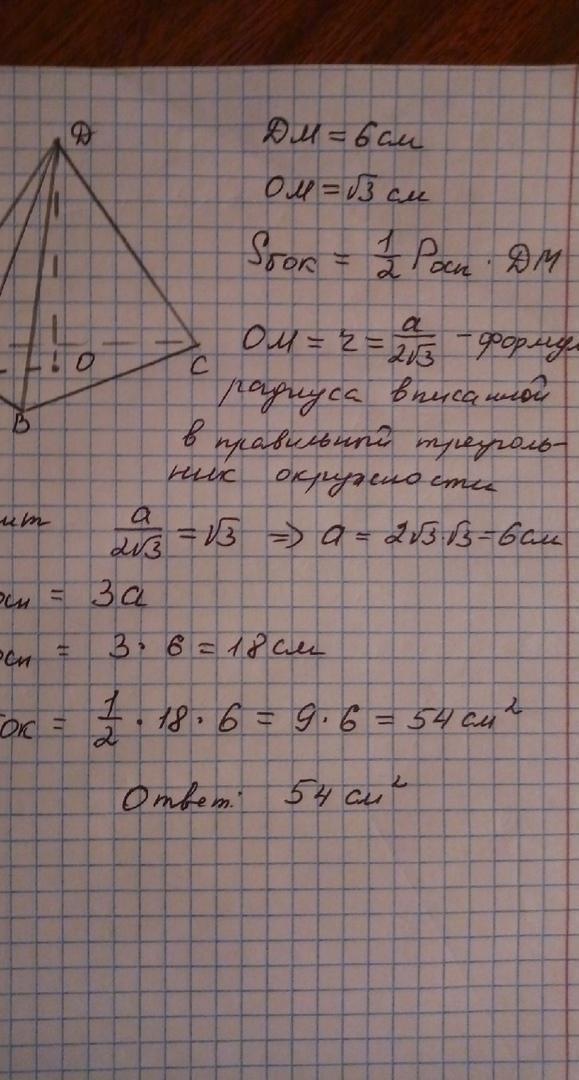 D
ДМ = 6 см
ОМ = √3 см
Sбок = 1/2 Pосн · ДМ
O
C
B
ОМ = r = a/2√3 - формул
радиуса вписанной
в правильный треуголь-
ник окружности
ит a/2√3 = √3 => a = 2√3·√3 = 6 см
осн = 3a
осн = 3 · 6 = 18 см
ок = 1/2 · 18 · 6 = 9 · 6 = 54 см²
Ответ: 54 см²